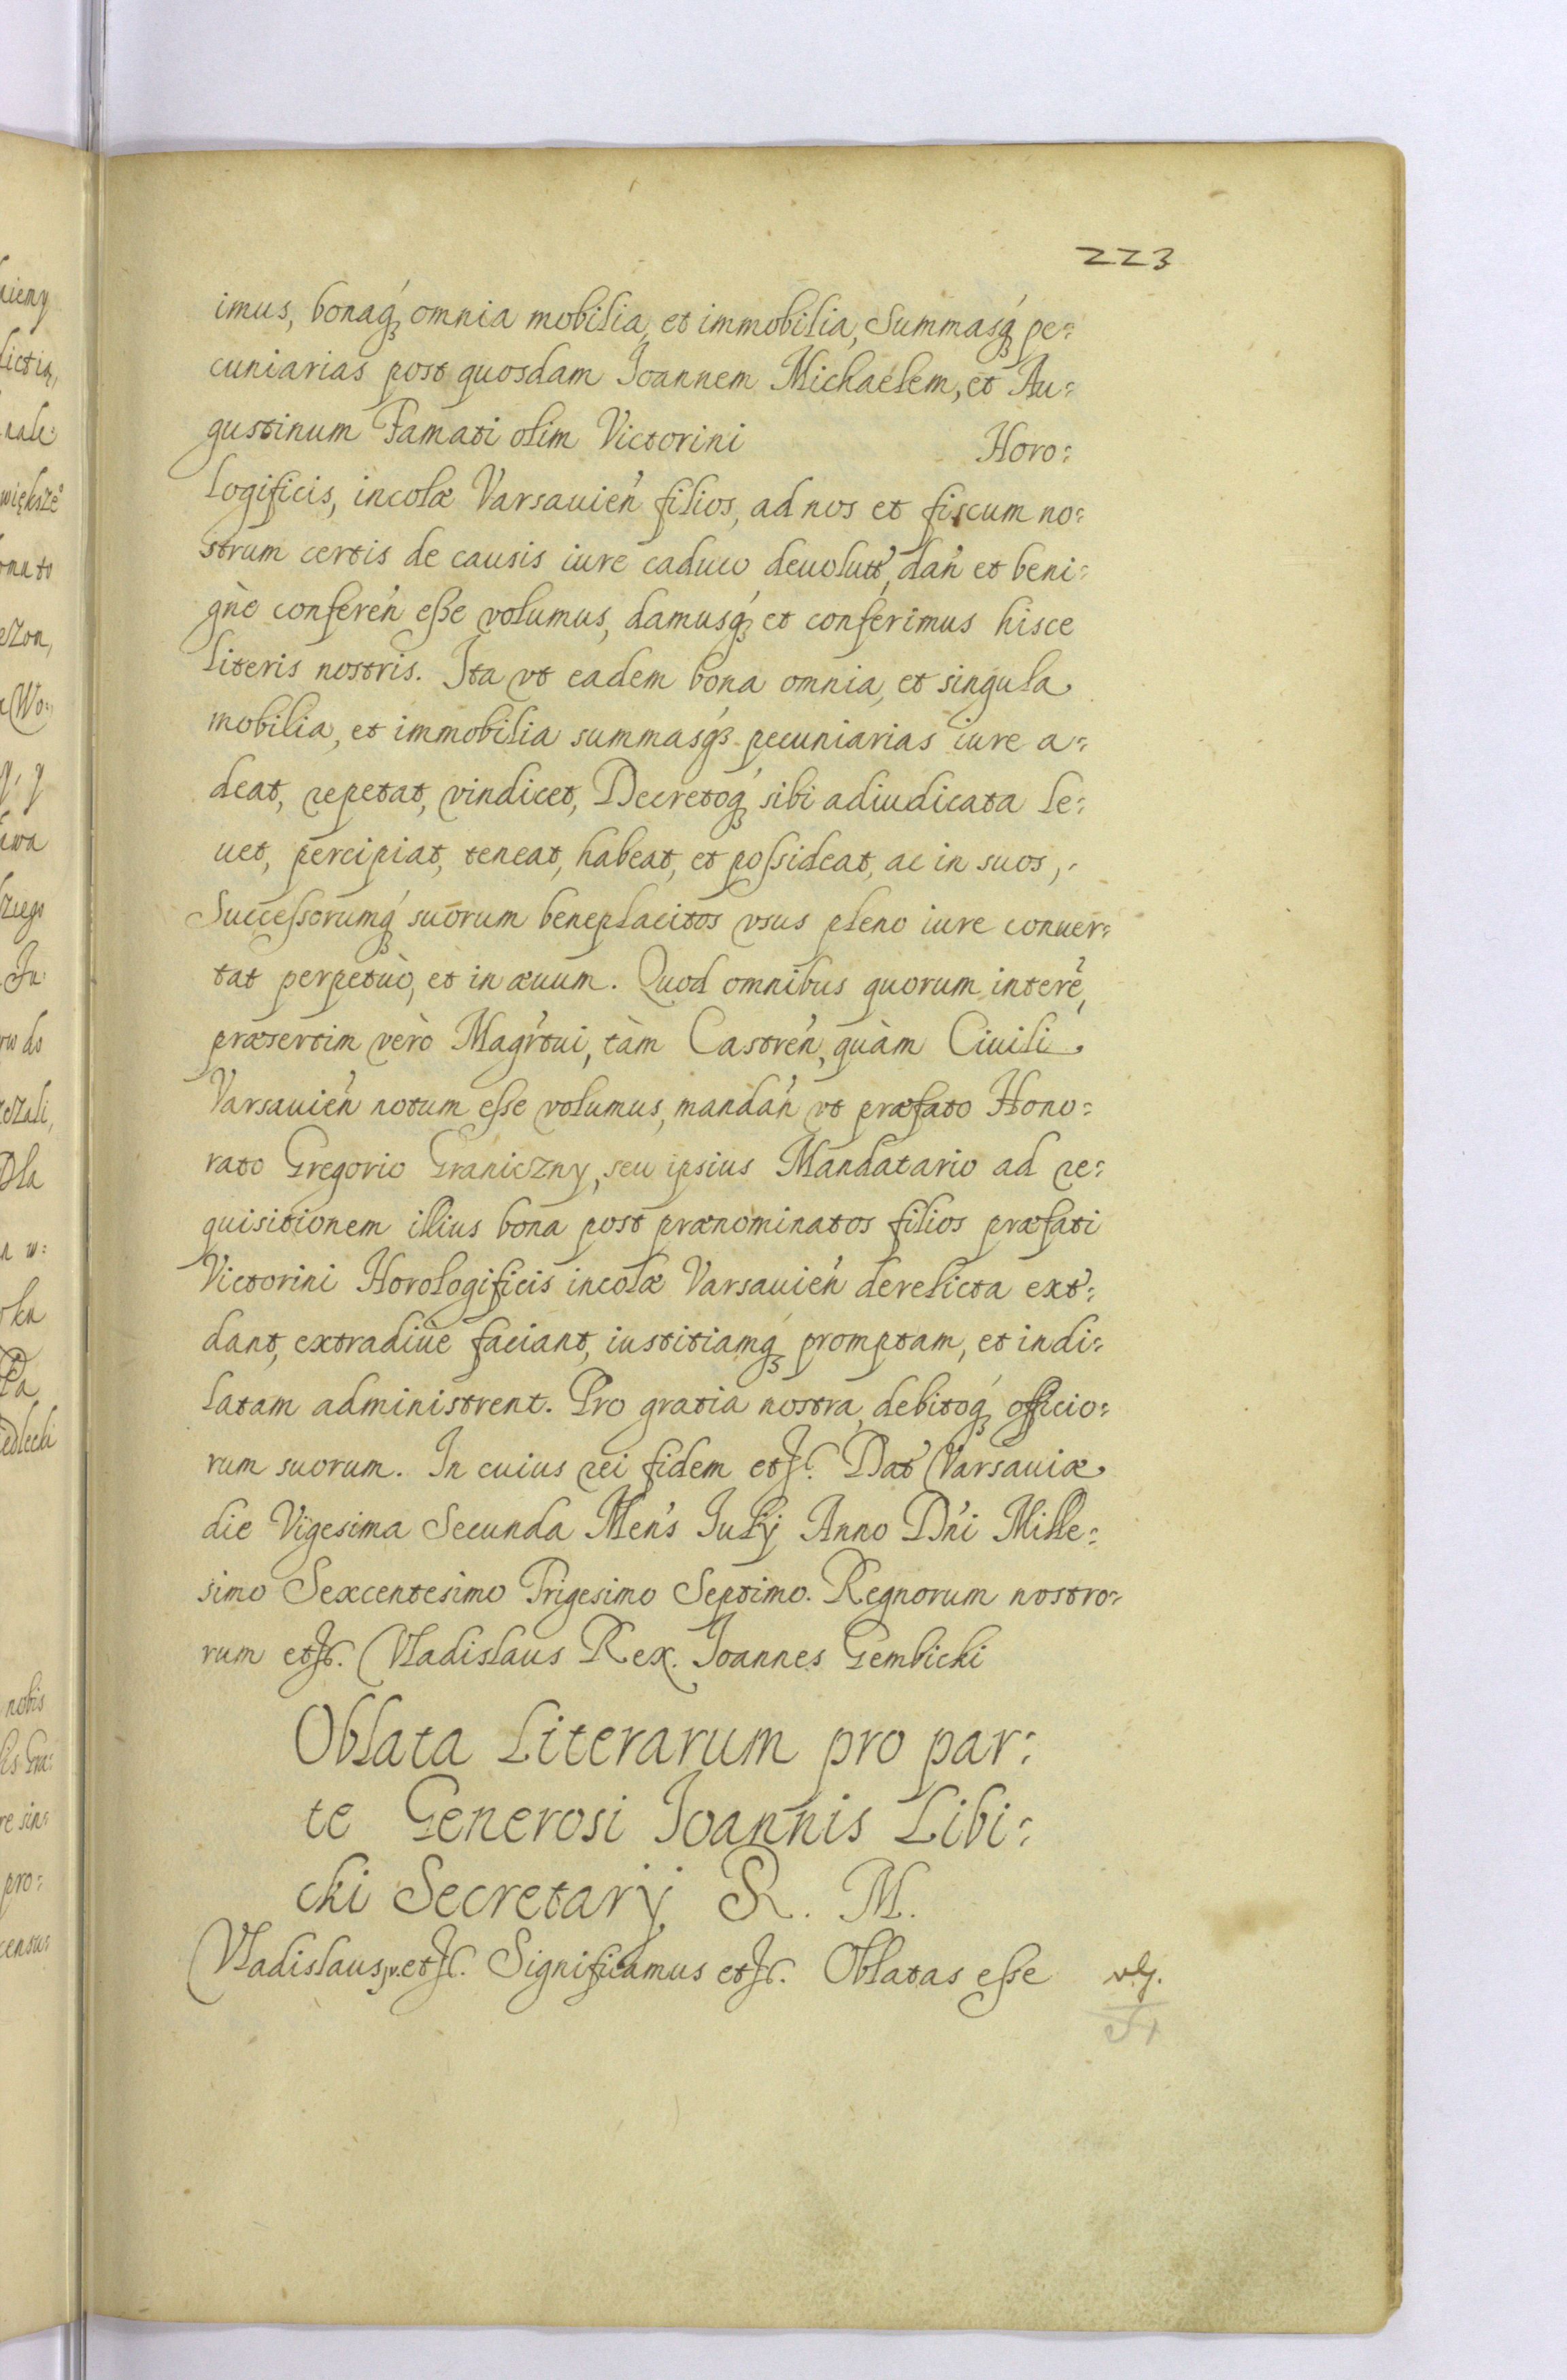 223
imus, bonaq́ꝫ omnia mobilia, et immobilia, Summasq́ꝫ pe:
cuniarias post quosdam Joannem Michaelem, et Au:
gustinum Famati olim Victorini Horo:
logificis, incolæ Varsauień filios, ad nos et fiscum no:
strum certis de causis iure caduco deuolutt́, dań et beni:
gnè confereń eße volumus, damusq́ꝫ et conferimus hisce
literis nostris. Ita vt eadem bona omnia, et singula
mobilia, et immobilia summasq́ꝫ pecuniarias iure a:
deat, repetat, vindicet, Decretoq́ꝫ sibi adiudicata le:
uet, percipiat, teneat, habeat, et poſsideat, ac in suos,
Succeſsorumq́ꝫ suorum beneplacitos vsus pleno iure conuer:
tat perpetuò, et in æuum. Quod omnibus quorum interẽ,
præsertim verò Magŕtui, tàm Castreń, quàm Ciuili
Varsauień notum eſse volumus, mandań vt præfato Hono:
rato Gregorio Graniczny, seu ipsius Mandatario ad re:
quisitionem illius bona post prænominatos filios præfati
Victorini Horologificis incolæ Varsauień derelicta ext́:
dant, extradiue faciant, iustitiamq́ꝫ promptam, et indi:
latam administrent. Pro gratia nostra, debitoq́ꝫ officio:
rum suorum. In cuius rei fidem etc. Dat́ Varsauiæ
die Vigesima Secunda Meńs Julij Anno Dńi Mille:
simo Sexcentesimo Trigesimo Septimo. Regnorum nostro:
rum etc. Vladislaus Rex. Joannes Gembicki
Oblata Literarum pro par:
te Generosi Joannis Libi:
cki Secretarij R. M.
Vladislaus etc. Significamus etc. Oblatas eſse